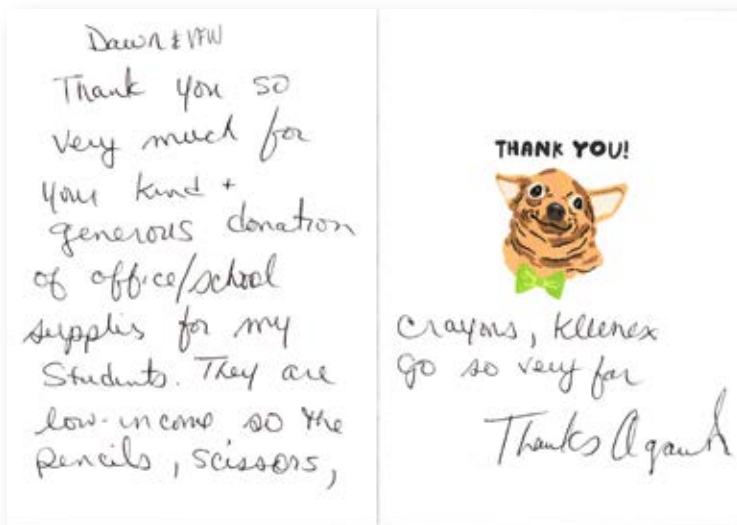 Dawn & VFW
Thank you so
very much for
your kind +
generous donation
of office/school
supplies for my
Students. They are
low-income so the
pencils, scissors,
THANK YOU!
crayons, Kleenex
go so very far
Thanks Again